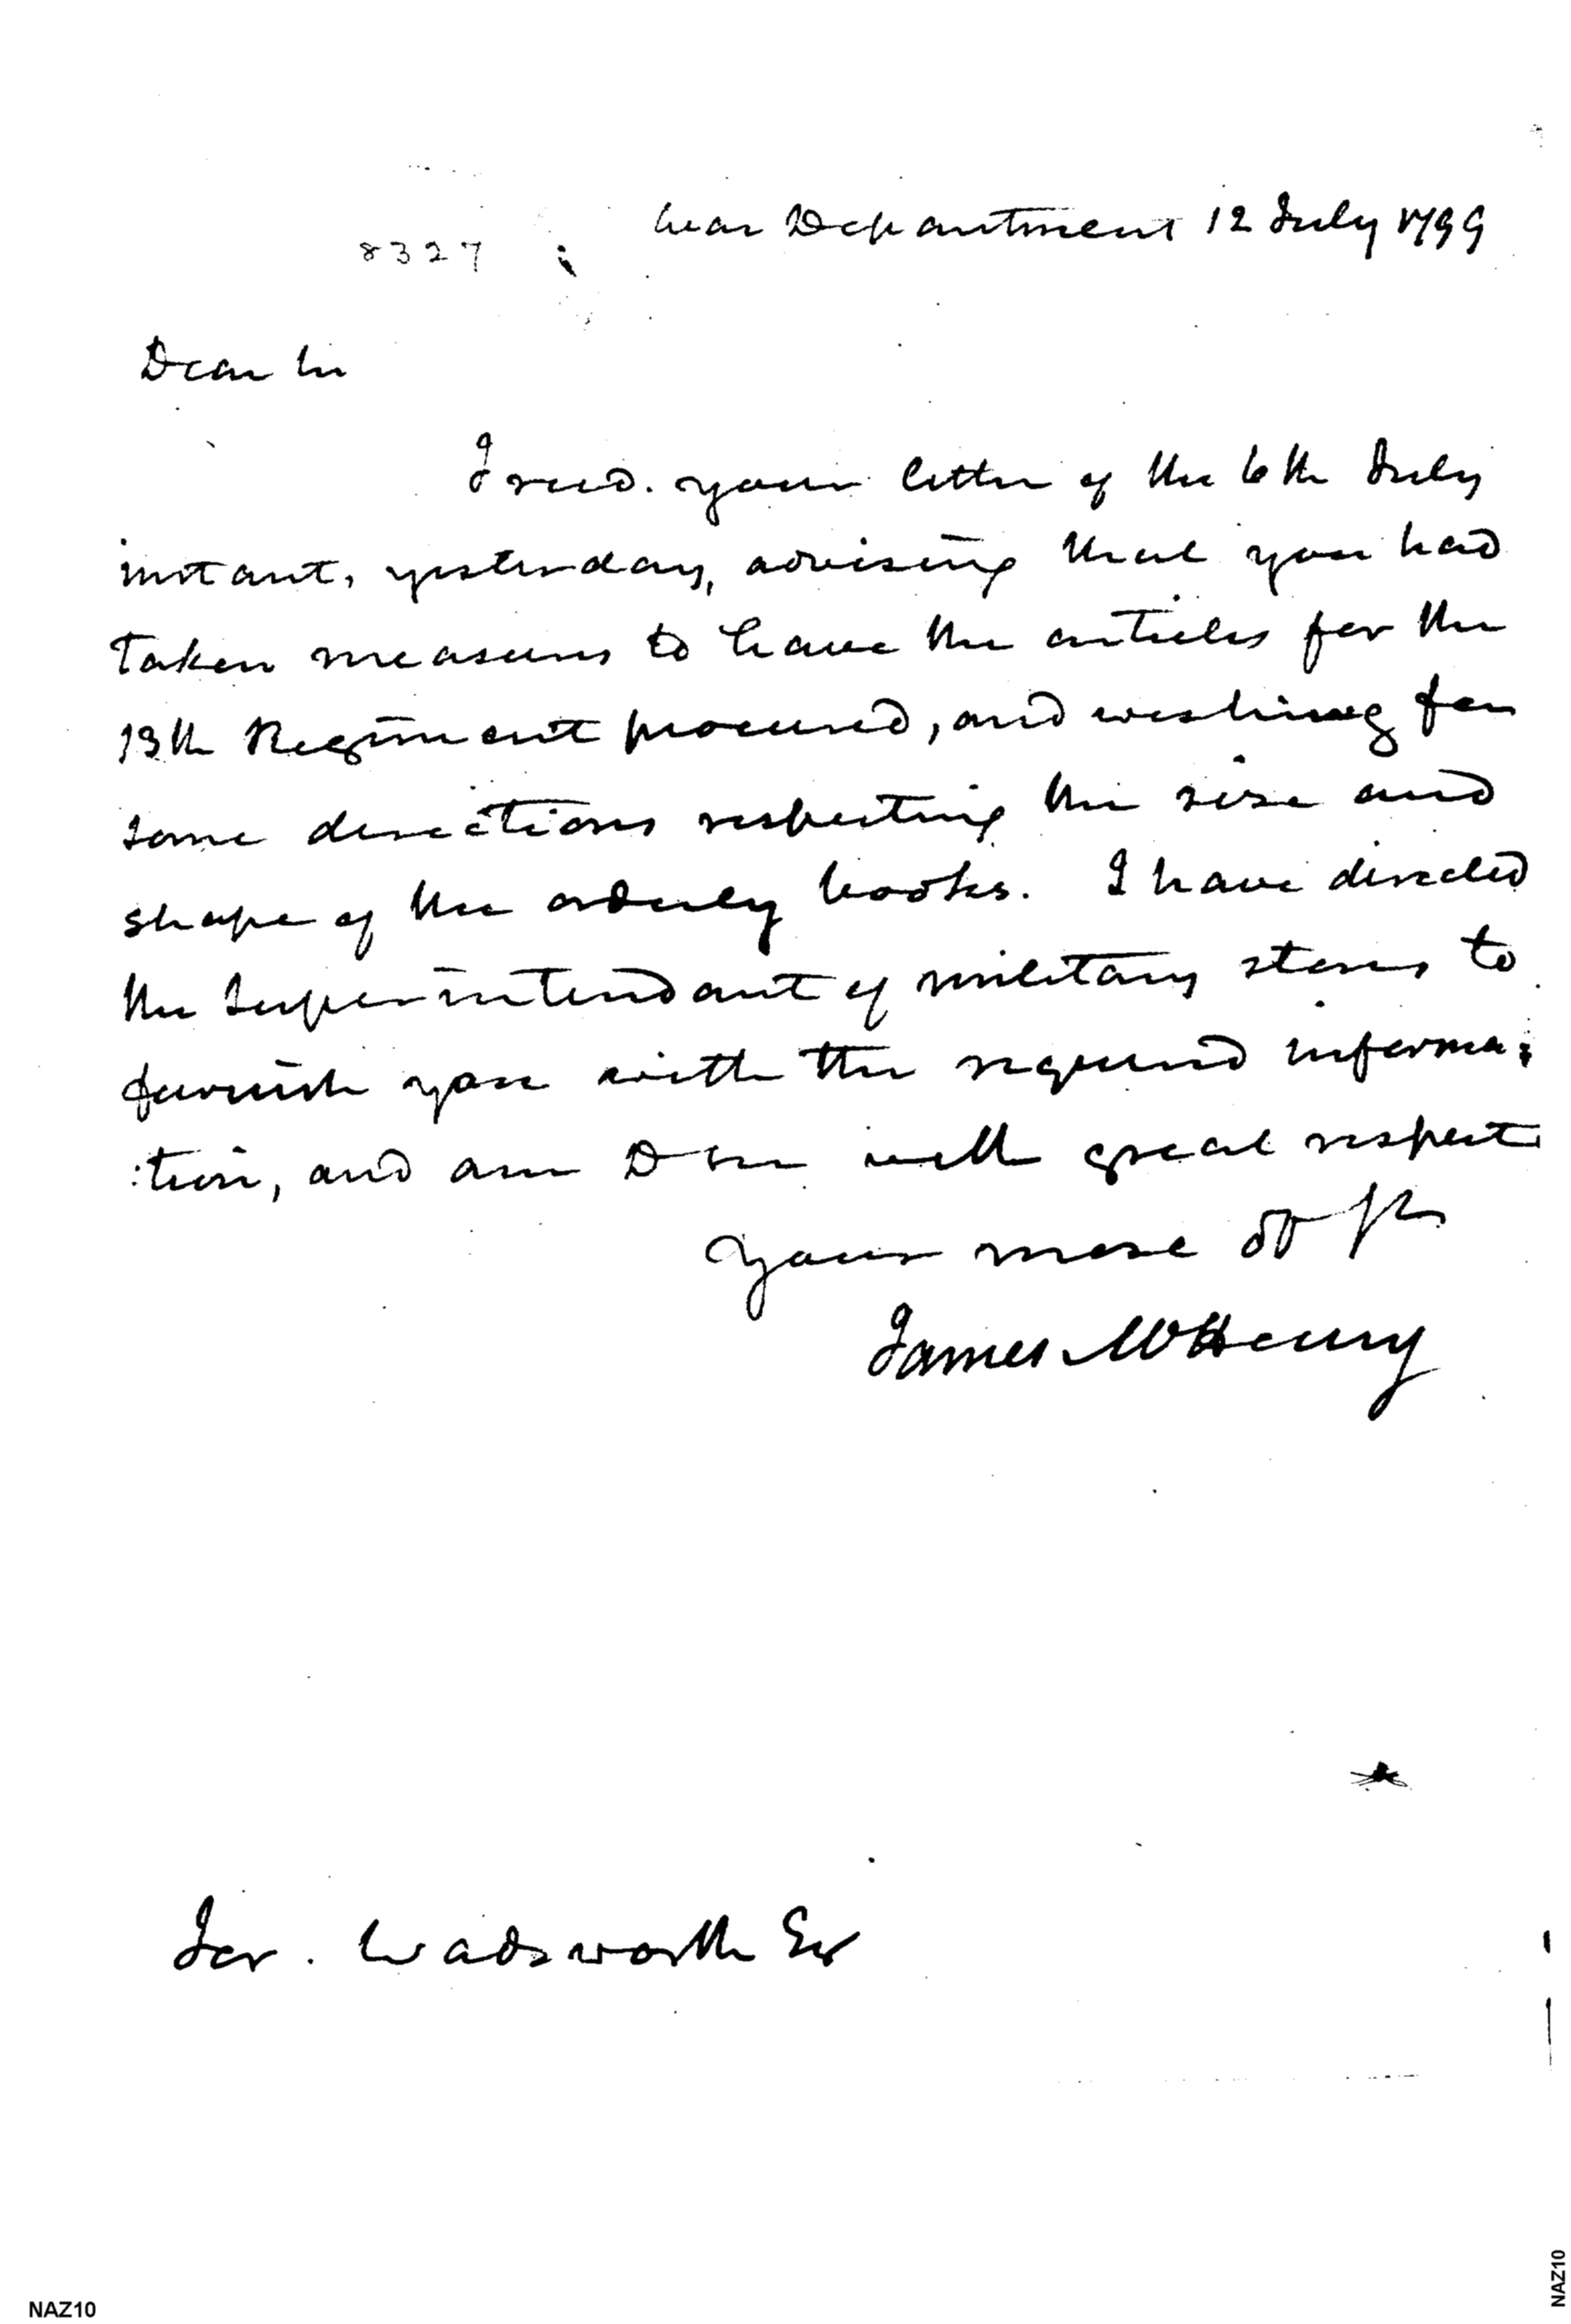 War Department 12 July 1799
8327
Dear Sir
I recd. your letter of the 6th July
instant, yesterday, advising that you had
taken measures to have the articles for the
13th Regiment procured, and wishing for
some directions respecting the size and
shape of the orderly books. I have directed
the Superintendant of military stores to
furnish you with the required informa:
:tion, and am D Sir with great respect
Your most ob st
James McHenry
Jer. Wadsworth Esr
NAZ10
NAZ10